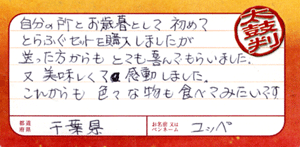 自分の所とお歳暮として 初めて
とらふぐセットを購入しましたが
送った方からも とても喜んでもらいました。
又 美味しくて 感動しました。
これからも 色々な物も 食べてみたいです
太鼓判
都道府県 千葉県
お名前 又は ペンネーム ユッペ